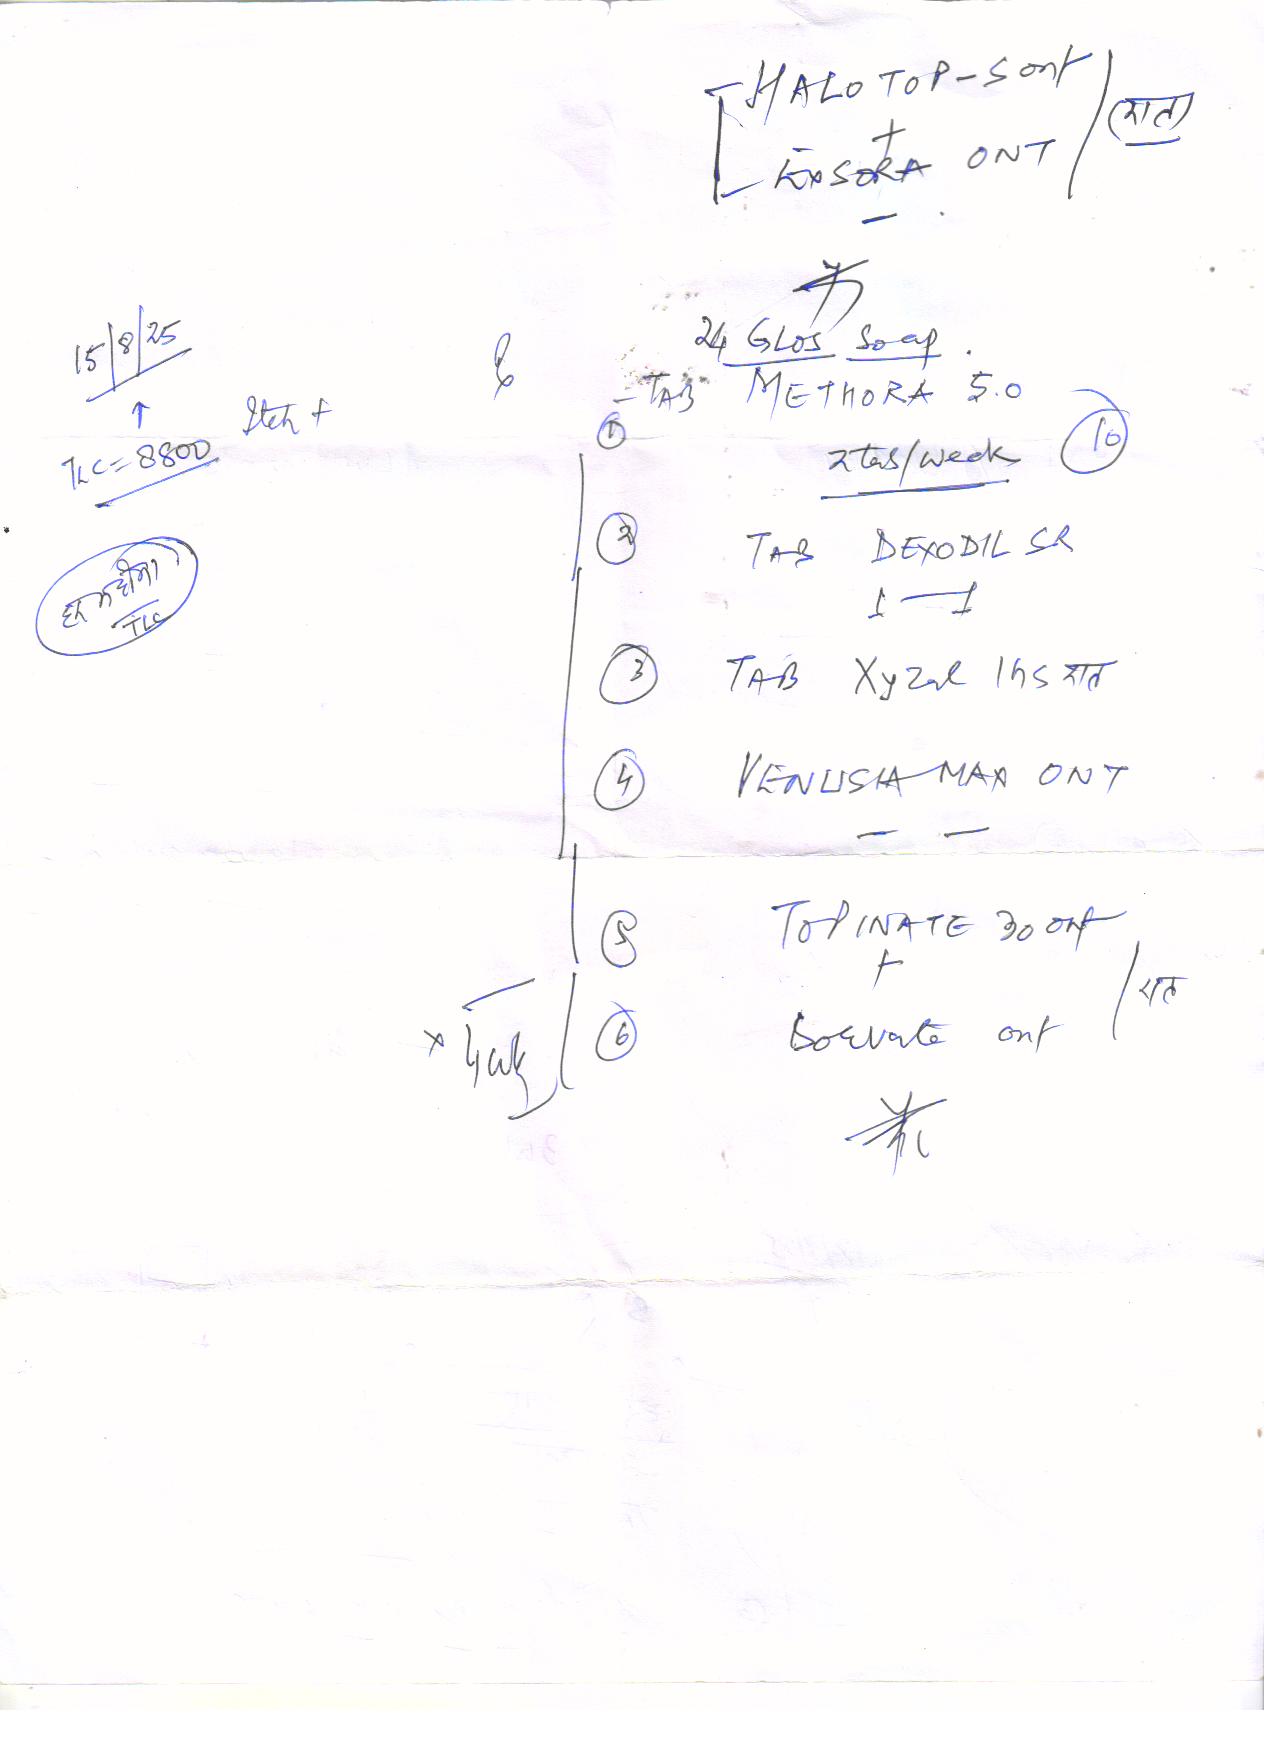 HALOTOP-S ont
+
EXSORA ONT
(रात)
24 GLOS Soap.
15/8/25
↑
TLC=8800
Itch +
हर महीना
TLC
① TAB METHORA 5.0
2 tab/week
10
② TAB DEXODIL SR
1—1
③ TAB Xyzal 1hs रात
④ VENUSIA MAX ONT
— —
⑤ TOPINATE 30 ont
+
रात
⑥ ont
x 4wk